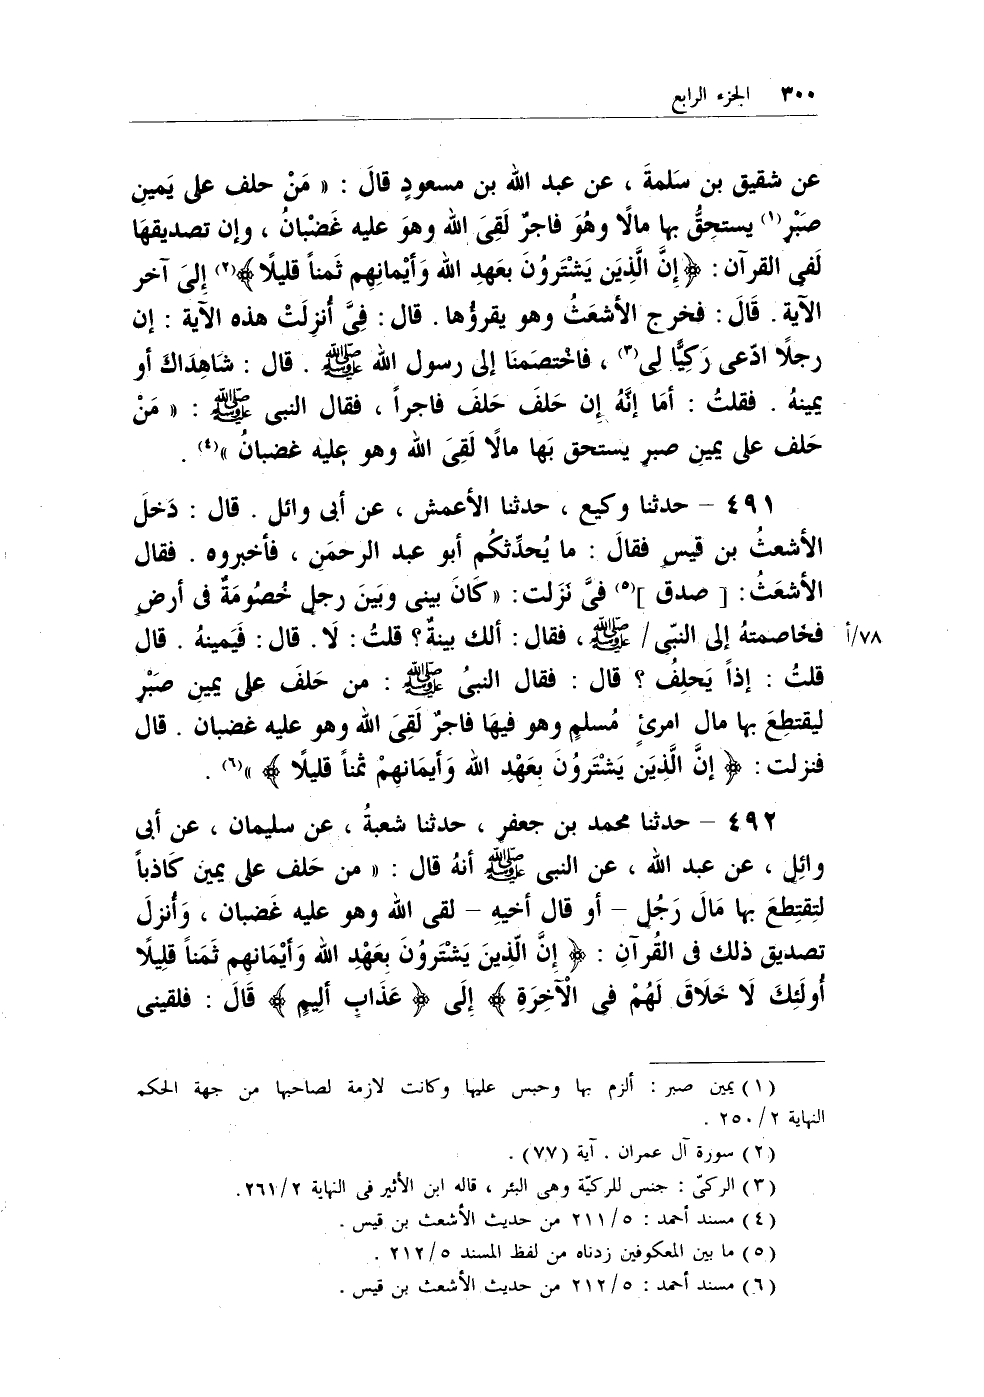 ٣٠٠ الجزء الرابع
عن شقيق بن سَلمةَ ، عن عبد الله بن مسعودٍ قالَ : « مَنْ حلف على يَمينِ
صَبْرٍ(١) يستحِقُّ بها مالًا وهُوَ فاجرٌ لَقِىَ الله وهوَ عليه غَضْبانُ ، وإن تصديقهَا
لَفى القرآن : ﴿ إنَّ الَّذِيَن يَشْتَروُنَ بعَهدِ الله وَأيْمانِهم ثَمناً قليلًا﴾(٢) إلىَ آخر
الآية . قَالَ : فخرج الأشعَثُ وهو يقرؤُها . قال : فِىَّ أُنزِلَتْ هذه الآية : إن
رجلًا ادّعى رَكِيًّا لى(٣) ، فاخْتصمنَا إلى رسول الله ﷺ . قال : شَاهِدَاكَ أو
يمينهُ . فقلتُ : أمَا إنَّهُ إن حَلفَ حَلفَ فاجراً ، فقال النبى ﷺ : « مَنْ
حَلف على يمينِ صبرٍ يستحق بَها مالًا لَقِىَ الله وهو عليه غضبانُ »(٤) .
٤٩١ – حدثنا وكيع ، حدثنا الأعمش ، عن أبى وائل . قال : دَخلَ
الأشعثُ بن قيسٍ فقالَ : ما يُحدِّثكُم أبو عبد الرحمَن ، فأخبروه . فقال
الأشعَثُ : [ صدق ](٥) فىَّ نَزَلت : « كَانَ بينى وبَينَ رجلٍ خُصُومَةٌ فى أرضٍ
فخَاصمتهُ إلى النبّى / ﷺ ، فقال : ألك بينةٌ ؟ قلتُ : لَا . قال : فَيَمينهُ . قال ٧٨/أ
قلتُ : إذاً يَحلِفُ ؟ قال : فقال النبىُ ﷺ : من حَلفَ على يمينِ صَبْرٍ
ليقتطِعَ بها مال امرئٍ مُسلمٍ وهو فيهَا فاجرٌ لَقِىَ الله وهو عليه غضبان . قال
فنزلت : ﴿ إنَّ الَّذِيَن يَشْتَروُنَ بِعَهْدِ الله وَأيمَانهِمْ ثمناً قليلًا ﴾ »(٦) .
٤٩٢ – حدثنا محمد بن جعفرٍ ، حدثنا شعبةُ ، عن سليمان ، عن أبى
وائِلٍ ، عن عبد الله ، عن النبى ﷺ أنهُ قال : « من حَلف على يمين كَاذباً
لتِقتِطعَ بها مَالَ رَجُلٍ – أو قال أخيهِ – لقى الله وهو عليه غَضبان ، وَأُنزلَ
تصديق ذلك فى القُرآنِ : ﴿ إنَّ الّذِينَ يَشْتَروُنَ بِعَهْدِ الله وَأيْمَانهِم ثَمَناً قلِيلًا
أُولَئِكَ لَا خَلَاقَ لَهُمْ فى الْآخِرَةِ ﴾ إلَى ﴿ عَذَابٍ أليِمٍ ﴾ قَالَ : فلقينى
(١) يمين صبر : ألزم بها وحبس عليها وكانت لازمة لصاحبها من جهة الحكم
النهاية ٢٥٠/٢ .
(٢) سورة آل عمران . آية (٧٧) .
(٣) الركىّ : جنس للركيّة وهى البئر ، قاله ابن الأثير فى النهاية ٢٦١/٢ .
(٤) مسند أحمد : ٢١١/٥ من حديث الأشعث بن قيس .
(٥) ما بين المعكوفين زدناه من لفظ المسند ٢١٢/٥ .
(٦) مسند أحمد : ٢١٢/٥ من حديث الأشعث بن قيس .